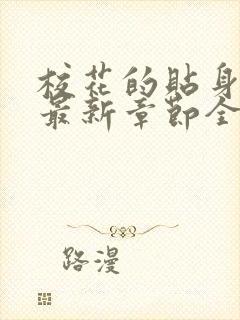 校花的贴身
最新章节全
路漫